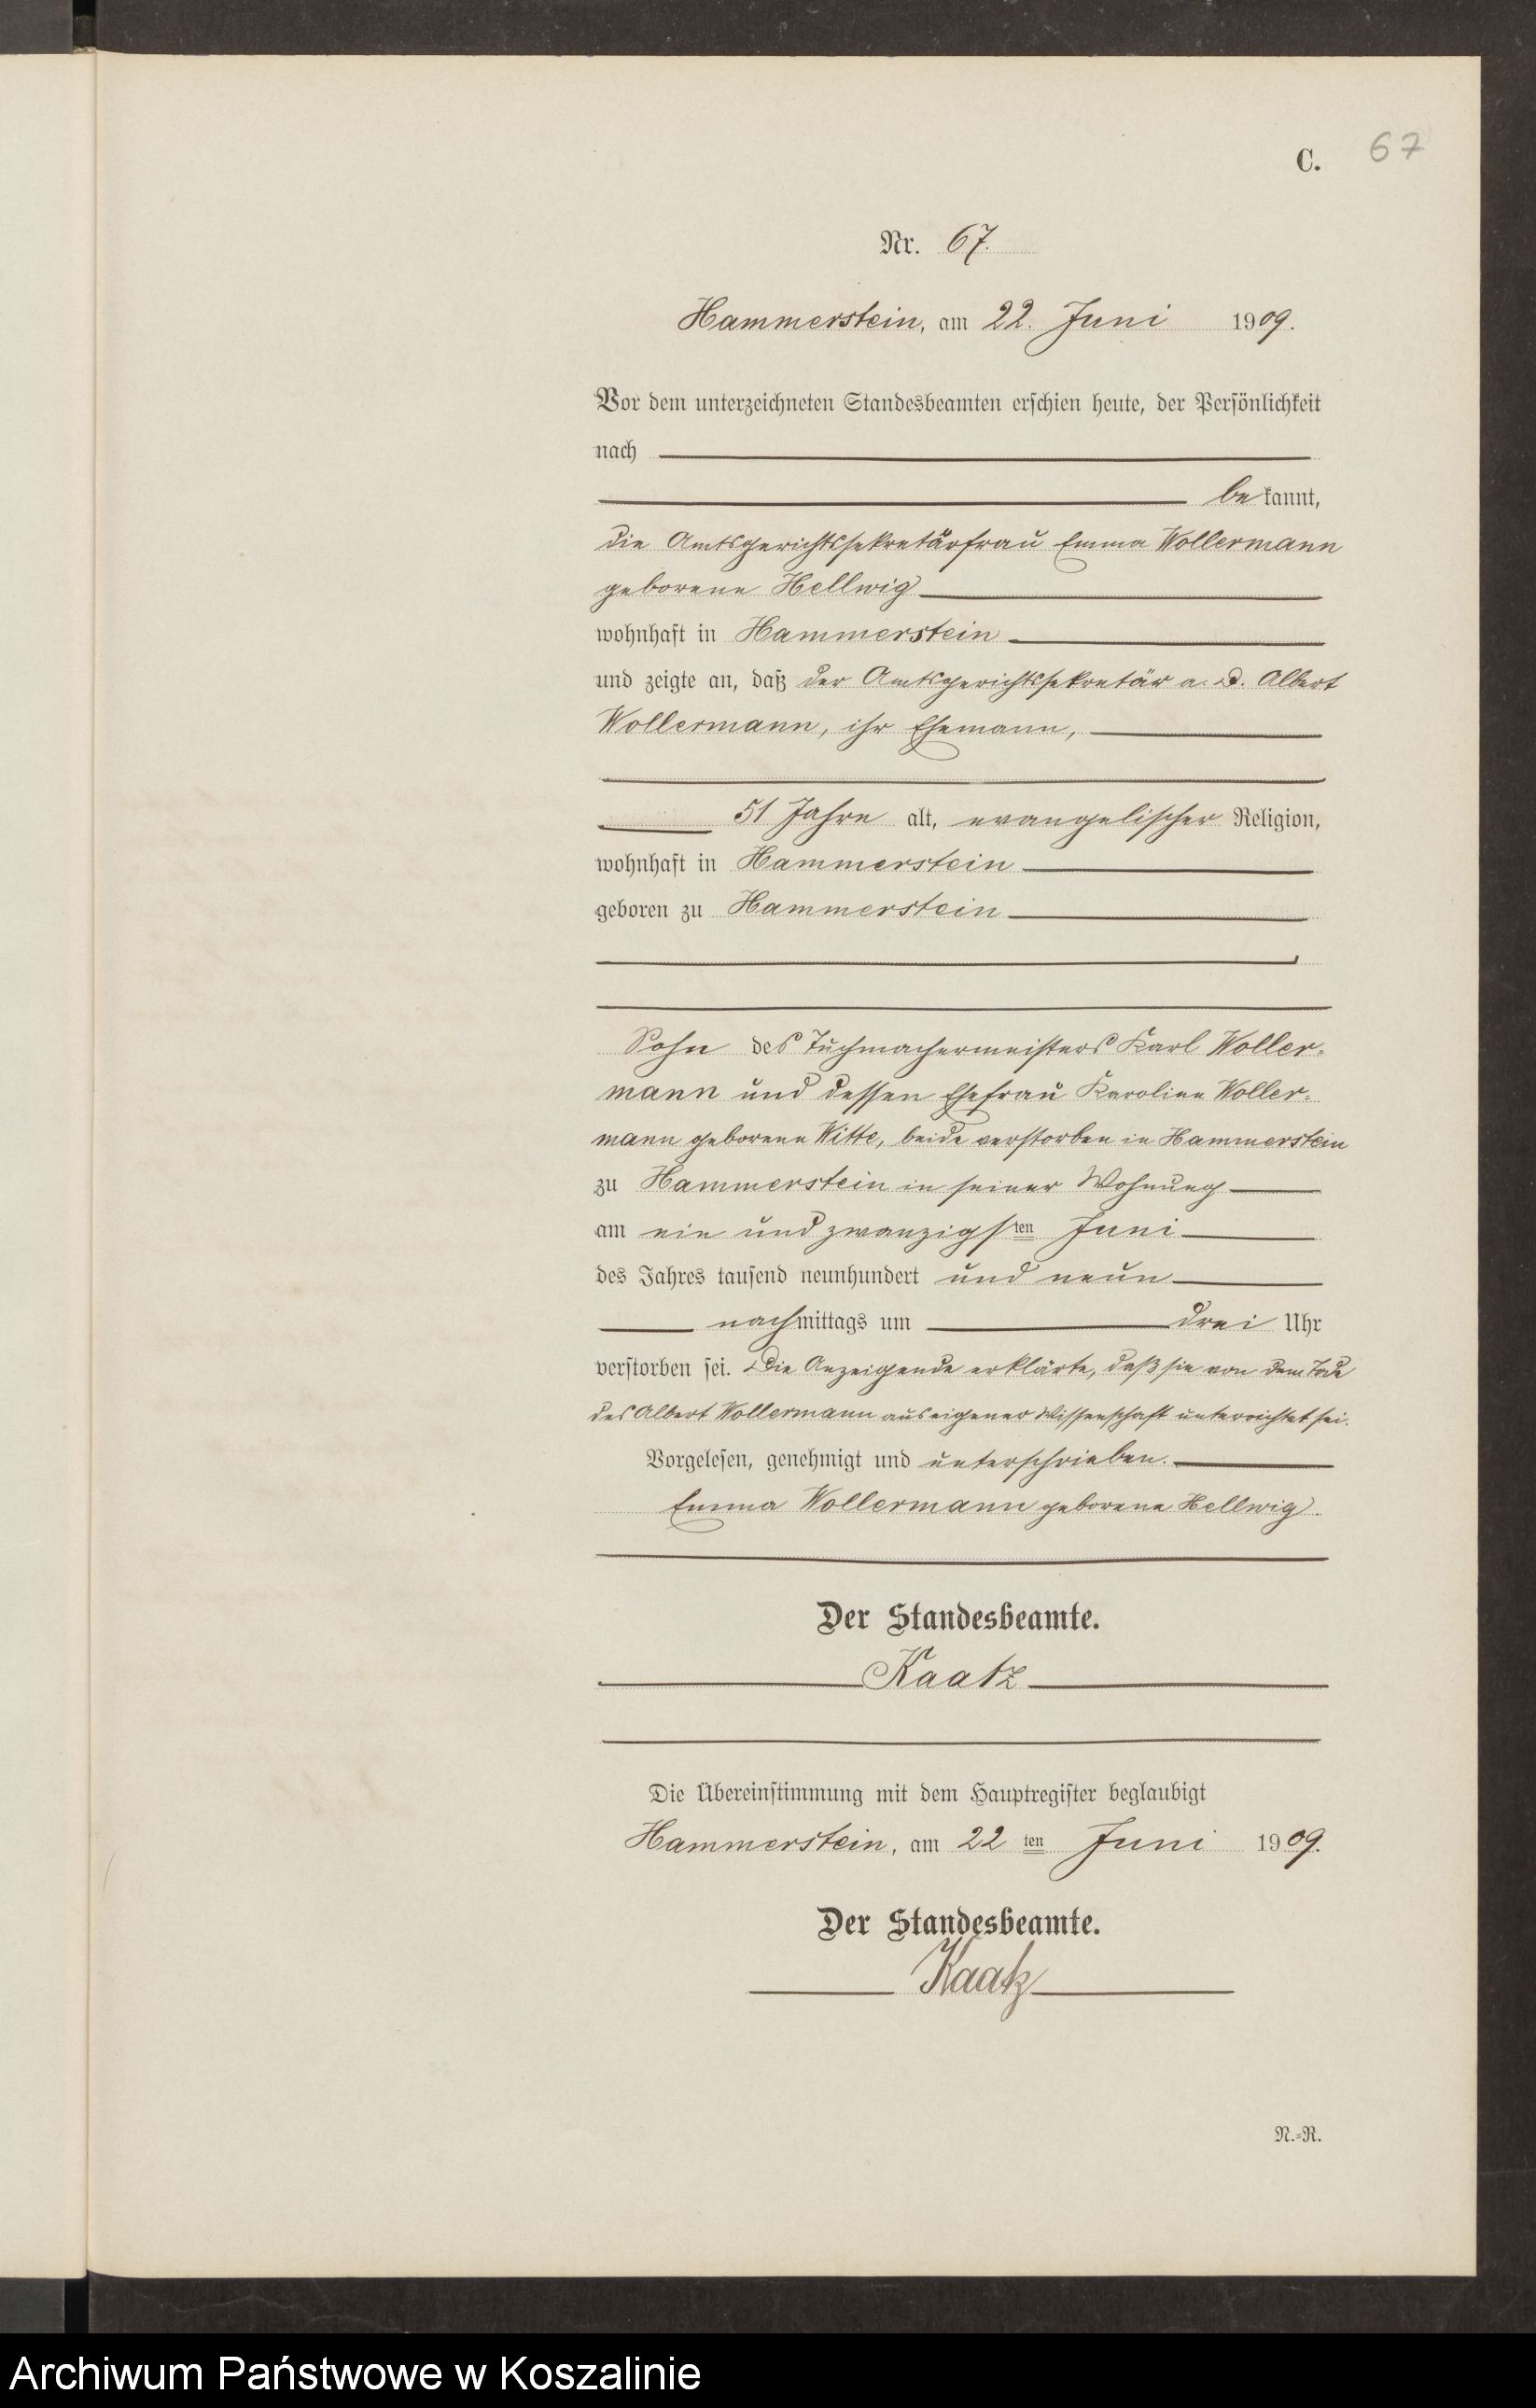 C. 67
Nr. 67.
Hammerstein, am 22. Juni 1909.
Vor dem unterzeichneten Standesbeamten erschien heute, der Persönlichkeit
nach
bekannt,
die Amtsgerichtssekretärfrau Emma Wollermann
geborene Hellwig
wohnhaft in Hammerstein
und zeigte an, daß der Amtsgerichtssekretär a. D. Albert
Wollermann, ihr Ehemann,
51 Jahre alt, evangelischer Religion,
wohnhaft in Hammerstein
geboren zu Hammerstein
,
Sohn des Tuchmachermeisters Karl Woller-
mann und dessen Ehefrau Karoline Woller-
mann geborene Witte, beide verstorben in Hammerstein
zu Hammerstein in seiner Wohnung
am ein und zwanzigsten Juni
des Jahres tausend neunhundert und neun
nachmittags um drei Uhr
verstorben sei. Die Anzeigende erklärte, daß sie von dem Tode
des Albert Wollermann aus eigener Wissenschaft unterrichtet sei.
Vorgelesen, genehmigt und unterschrieben.
Emma Wollermann geborene Hellwig.
Der Standesbeamte.
Kaatz
Die Übereinstimmung mit dem Hauptregister beglaubigt
Hammerstein, am 22 ten Juni 1909.
Der Standesbeamte.
Kaatz
N.-R.
Archiwum Państwowe w Koszalinie